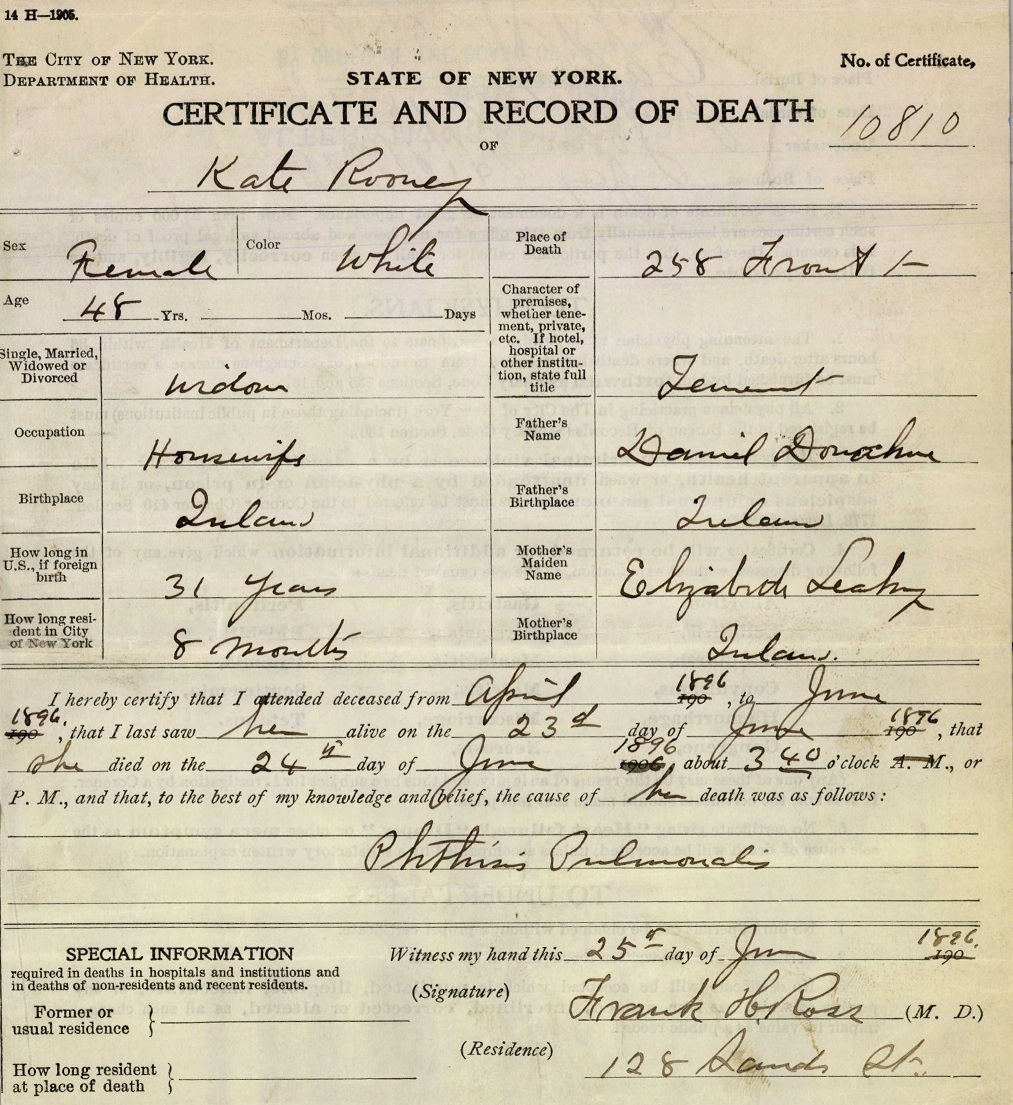 14 H—1905.
THE CITY OF NEW YORK.
DEPARTMENT OF HEALTH.
STATE OF NEW YORK.
No. of Certificate,
CERTIFICATE AND RECORD OF DEATH
10810
OF
Kate Rooney
Sex Female Color White
Place of Death 258 Front
Age 48 Yrs. Mos. Days
Character of premises, whether tenement, private, etc. If hotel, hospital or other institution, state full title Tenement
Single, Married, Widowed or Divorced Widow
Occupation Housewife
Father's Name Daniel Donohue
Birthplace Ireland
Father's Birthplace Ireland
How long in U.S., if foreign birth 31 years
Mother's Maiden Name Elizabeth Leahy
How long resident in City of New York 8 months
Mother's Birthplace Ireland.
I hereby certify that I attended deceased from April 1896 190 , to June
1896 190 , that I last saw her alive on the 23d day of June 1896 190 , that
she died on the 24th day of June 1896 1906, about 3 40 o'clock A. M., or
P. M., and that, to the best of my knowledge and belief, the cause of her death was as follows:
Phthisis Pulmonalis
SPECIAL INFORMATION
required in deaths in hospitals and institutions and
in deaths of non-residents and recent residents.
Former or
usual residence
How long resident
at place of death
Witness my hand this 25th day of June 1896. 190
(Signature) Frank H Ross (M. D.)
(Residence) 128 Sands St.